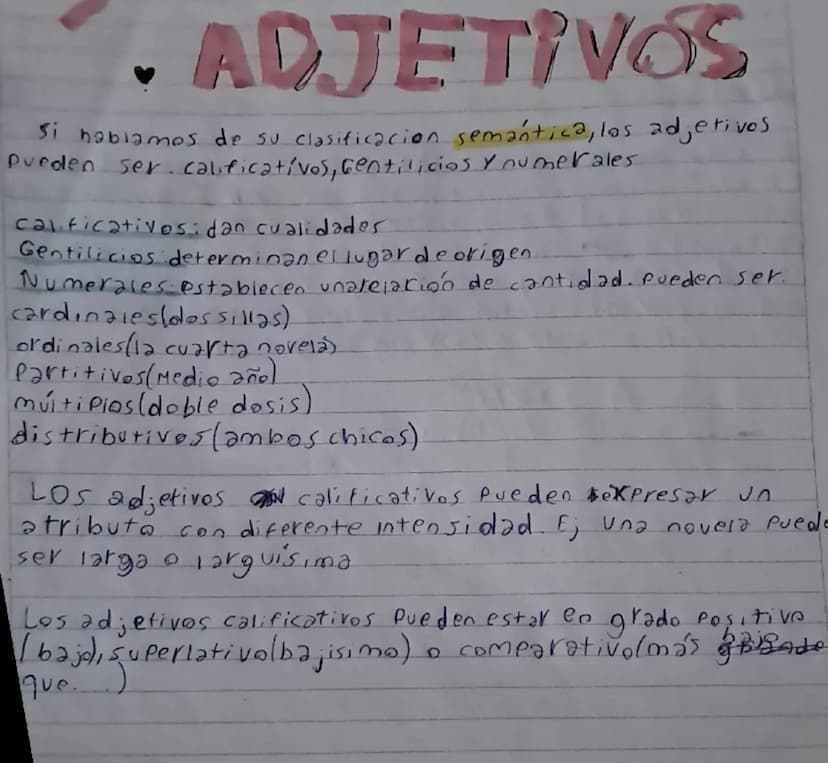 . ADJETIVOS
si hablamos de su clasificacion semántica, los adjetivos
pueden ser. calificatívos, Gentilicios y numerales
calificativos: dan cualidades
Gentilicios: determinan el lugar de origen
Numerales: establecen una relación de cantidad. Pueden ser
cardinales (dos sillas)
ordinales (la cuarta novela)
Partitivos (Medio año)
múltiplos (doble dosis)
distributivos (ambos chicos)
LOS adjetivos calificativos Pueden expresar un
atributo con diferente intensidad. Ej una novela Puede
ser larga o larguísima
Los adjetivos calificativos Pueden estar en grado Positivo
(bajo), superlativo (bajisimo) o comparativo (más bajo
que....)